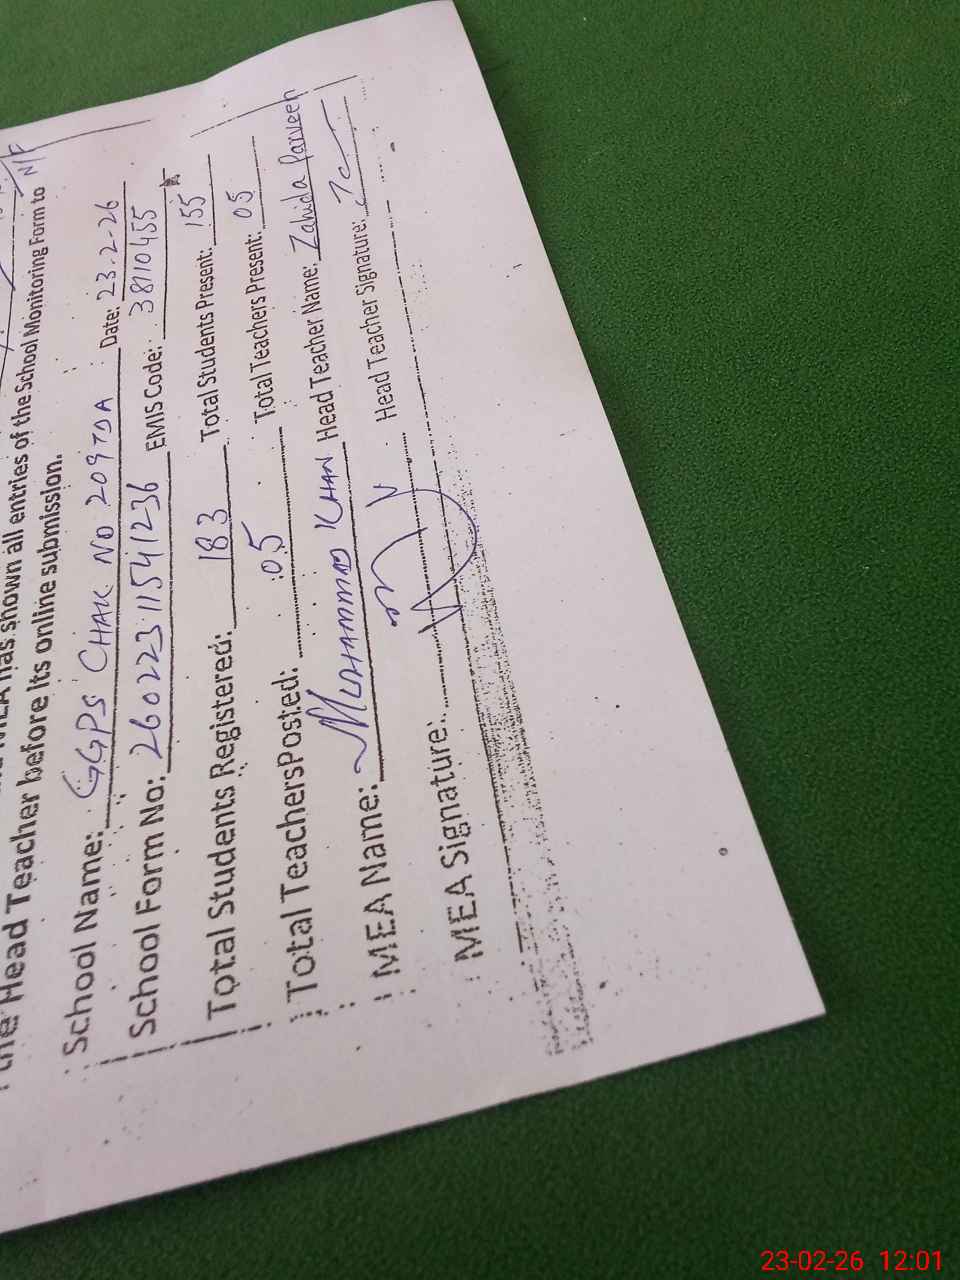 has shown all entries of the School Monitoring Form to N/F
the Head Teacher before its online submission.
School Name: GGPS CHAK NO 209 TDA Date: 23.2-26
School Form No: 26022311541236 EMIS Code: 38110455
Total Students Registered: 183 Total Students Present: 155
Total TeachersPosted: 05 Total Teachers Present: 05
MEA Name: MUHAMMAD KHAN Head Teacher Name: Zahida Parveen
MEA Signature: Head Teacher Signature:
23-02-26 12:01